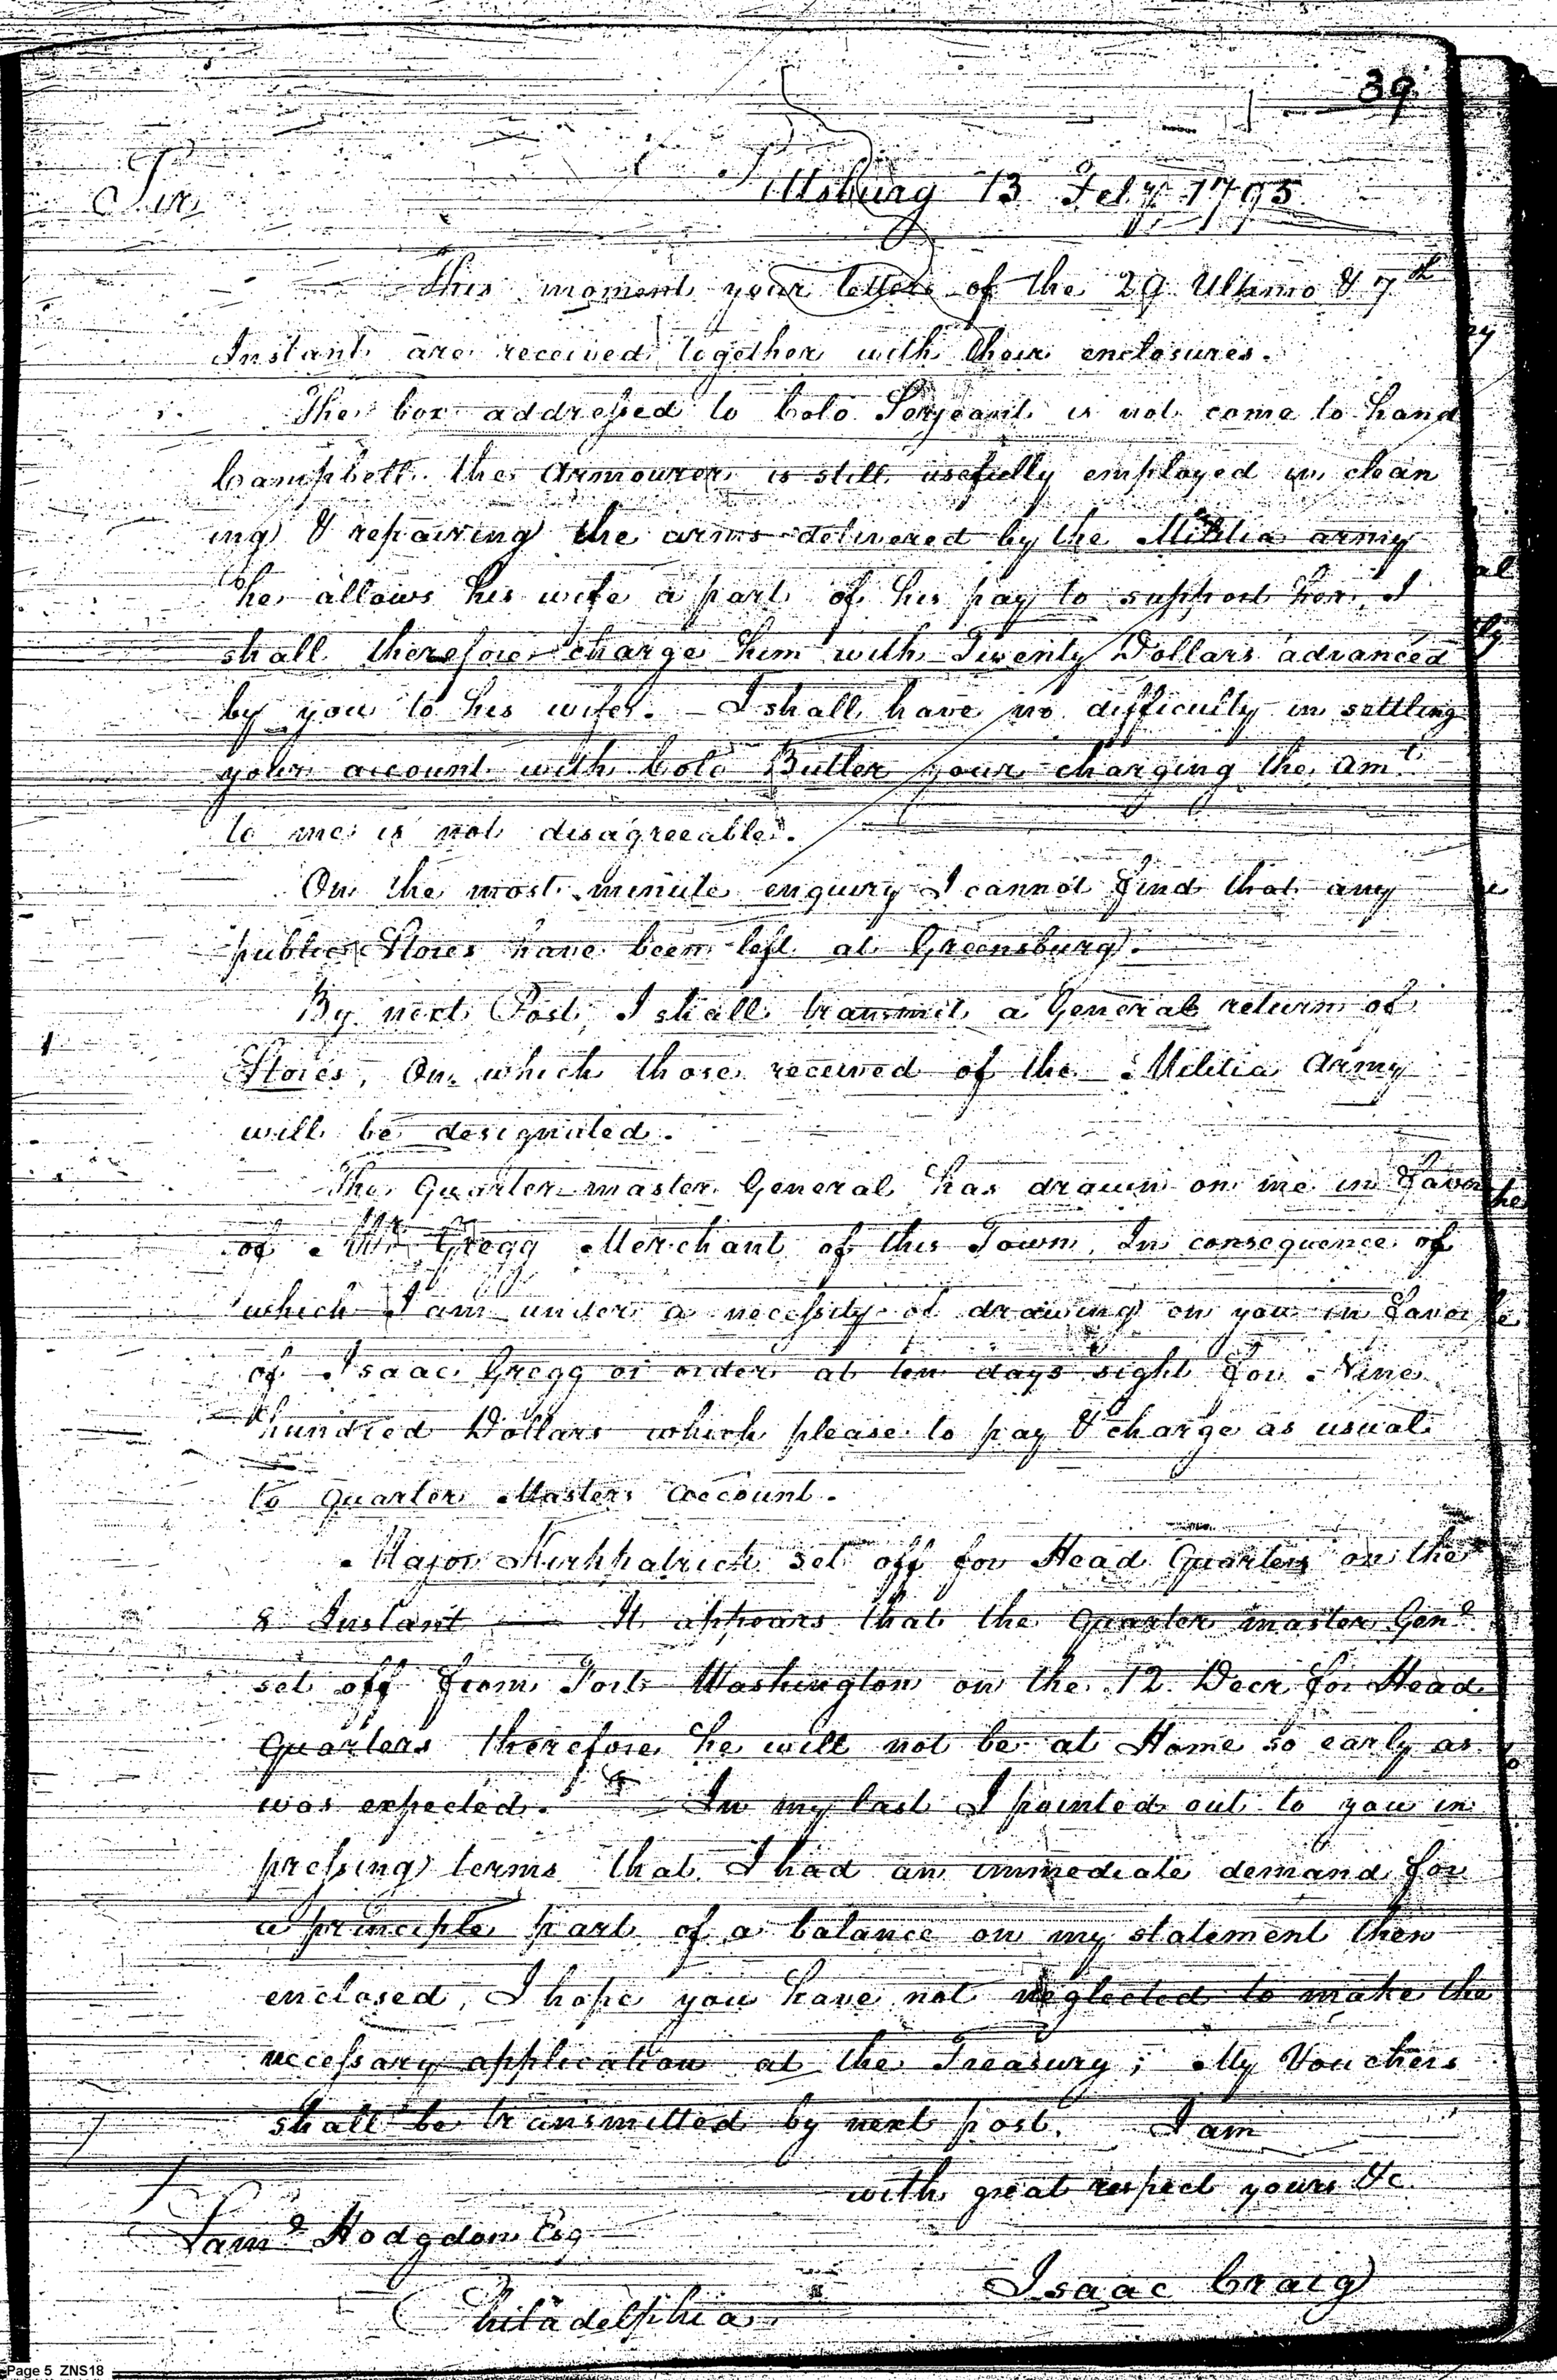 39
Pittsburg 13 Feby. 1795
Sir
This moment your letters of the 29 Ultimo & 7th
Instant are received together with their enclosures.
The box addressed to Colo Serjeant is not come to hand
Campbell the Armourer is still usefully employed in clean
ing & repairing the arms delivered by the Militia army
he allows his wife a part of his pay to support her, I
shall therefore charge him with Twenty Dollars advanced
by you to his wife. - I shall have no difficulty in settling
your account with Colo Butler your charging the Amt.
to me is not disagreeable.
On the most minute enquiry I cannot find that any
public Stores have been left at Greensburg.
By next Post, I shall transmit a General return of
Stores, On which those received of the Militia Army
will be designated.
The Quarter master General has drawn on me in Favor
of Mr Gregg Merchant of this Town, In consequence of
which I am under a necessity of drawing on you in Favor
of Isaac Gregg or order at ten days sight for Nine
hundred Dollars which please to pay & charge as usual
to Quarter Masters Account.
Major Kirkpatrick set off for Head Quarters on the
8 Instant — It appears that the Quarter master Genl
set off from Fort Washington on the 12 Decr for Head
Quarters therefore he will not be at Home so early as
was expected. In my last I pointed out to you in
pressing terms that I had an immediate demand for
a principle part of a balance on my statement then
enclosed, I hope you have not neglected to make the
necessary application at the Treasury; My Vouchers
shall be transmitted by next post. I am
with great respect yours &c.
Saml Hodgdon Esq
Isaac Craig
Philadelphia
Page 5 ZNS18